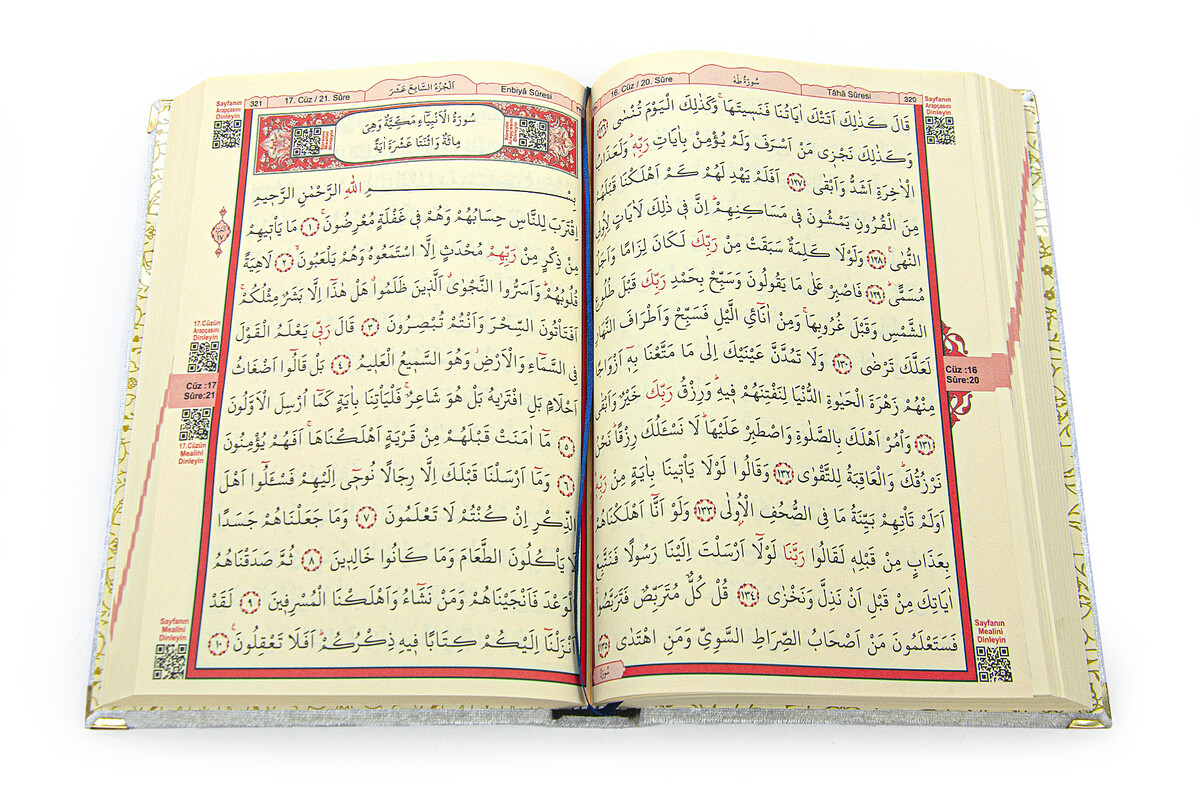 320
Tâhâ Sûresi
سُورَةُ طٰهٰ
16. Cüz / 20. Sûre
Sayfanın
Arapçasını
Dinleyin
قَالَ كَذٰلِكَ اَتَتْكَ اٰيَاتُنَا فَنَسِيتَهَاۚ وَكَذٰلِكَ الْيَوْمَ تُنْسٰى
وَكَذٰلِكَ نَجْزِى مَنْ اَسْرَفَ وَلَمْ يُؤْمِنْ بِاٰيَاتِ رَبِّهِۜ وَلَعَذَابُ
الْاٰخِرَةِ اَشَدُّ وَاَبْقٰى ﴿١٢٧﴾ اَفَلَمْ يَهْدِ لَهُمْ كَمْ اَهْلَكْنَا قَبْلَهُمْ
مِنَ الْقُرُونِ يَمْشُونَ فِى مَسَاكِنِهِمْۜ اِنَّ فِى ذٰلِكَ لَاٰيَاتٍ لِاُولِى
النُّهٰى۟ ﴿١٢٨﴾ وَلَوْلَا كَلِمَةٌ سَبَقَتْ مِنْ رَبِّكَ لَكَانَ لِزَامًا وَاَجَلٌ
مُسَمًّىۜ ﴿١٢٩﴾ فَاصْبِرْ عَلٰى مَا يَقُولُونَ وَسَبِّحْ بِحَمْدِ رَبِّكَ قَبْلَ طُلُوعِ
الشَّمْسِ وَقَبْلَ غُرُوبِهَاۚ وَمِنْ اٰنَٓائِ الَّيْلِ فَسَبِّحْ وَاَطْرَافَ النَّهَارِ
لَعَلَّكَ تَرْضٰى ﴿١٣٠﴾ وَلَا تَمُدَّنَّ عَيْنَيْكَ اِلٰى مَا مَتَّعْنَا بِهٖٓ اَزْوَاجًا
مِنْهُمْ زَهْرَةَ الْحَيٰوةِ الدُّنْيَا لِنَفْتِنَهُمْ فٖيهِۜ وَرِزْقُ رَبِّكَ خَيْرٌ وَاَبْقٰى
﴿١٣١﴾ وَاْمُرْ اَهْلَكَ بِالصَّلٰوةِ وَاصْطَبِرْ عَلَيْهَاۜ لَا نَسْـَٔلُكَ رِزْقًاۜ نَحْنُ
نَرْزُقُكَۜ وَالْعَاقِبَةُ لِلتَّقْوٰى ﴿١٣٢﴾ وَقَالُوا لَوْلَا يَأْتٖينَا بِاٰيَةٍ مِنْ رَبِّهٖ
اَوَلَمْ تَأْتِهِمْ بَيِّنَةُ مَا فِى الصُّحُفِ الْاُولٰى ﴿١٣٣﴾ وَلَوْ اَنَّٓا اَهْلَكْنَاهُمْ
بِعَذَابٍ مِنْ قَبْلِهٖ لَقَالُوا رَبَّنَا لَوْلَٓا اَرْسَلْتَ اِلَيْنَا رَسُولًا فَنَتَّبِعَ
اٰيَاتِكَ مِنْ قَبْلِ اَنْ نَذِلَّ وَنَخْزٰى ﴿١٣٤﴾ قُلْ كُلٌّ مُتَرَبِّصٌ فَتَرَبَّصُواۚ
فَسَتَعْلَمُونَ مَنْ اَصْحَابُ الصِّرَاطِ السَّوِىِّ وَمَنِ اهْتَدٰى ﴿١٣٥﴾
Cüz :16
Sûre:20
Sayfanın
Mealini
Dinleyin
Enbiyâ Sûresi
اَلْجُزْءُ السَّابِعَ عَشَرَ
17. Cüz / 21. Sûre
321
Sayfanın
Arapçasını
Dinleyin
سُورَةُ الْاَنْبِيَٓاءِ مَكِّيَّةٌ وَهِىَ
مِائَةٌ وَاثْنَتَا عَشْرَةَ اٰيَةً
بِسْمِ اللّٰهِ الرَّحْمٰنِ الرَّحٖيمِ
اِقْتَرَبَ لِلنَّاسِ حِسَابُهُمْ وَهُمْ فٖى غَفْلَةٍ مُعْرِضُونَۚ ﴿١﴾ مَا يَأْتٖيهِمْ
مِنْ ذِكْرٍ مِنْ رَبِّهِمْ مُحْدَثٍ اِلَّا اسْتَمَعُوهُ وَهُمْ يَلْعَبُونَۙ ﴿٢﴾ لَاهِيَةً
قُلُوبُهُمْۜ وَاَسَرُّوا النَّجْوٰىۗ اَلَّذٖينَ ظَلَمُواۗ هَلْ هٰذَٓا اِلَّا بَشَرٌ مِثْلُكُمْۚ
اَفَتَأْتُونَ السِّحْرَ وَاَنْتُمْ تُبْصِرُونَ ﴿٣﴾ قَالَ رَبّٖى يَعْلَمُ الْقَوْلَ
فِى السَّمَٓاءِ وَالْاَرْضِۘ وَهُوَ السَّمٖيعُ الْعَلٖيمُ ﴿٤﴾ بَلْ قَالُٓوا اَضْغَاثُ
اَحْلَامٍ بَلِ افْتَرٰيهُ بَلْ هُوَ شَاعِرٌۚ فَلْيَأْتِنَا بِاٰيَةٍ كَمَٓا اُرْسِلَ الْاَوَّلُونَ
﴿٥﴾ مَٓا اٰمَنَتْ قَبْلَهُمْ مِنْ قَرْيَةٍ اَهْلَكْنَاهَاۚ اَفَهُمْ يُؤْمِنُونَ
﴿٦﴾ وَمَٓا اَرْسَلْنَا قَبْلَكَ اِلَّا رِجَالًا نُوحٖٓى اِلَيْهِمْ فَسْـَٔلُٓوا اَهْلَ
الذِّكْرِ اِنْ كُنْتُمْ لَا تَعْلَمُونَ ﴿٧﴾ وَمَا جَعَلْنَاهُمْ جَسَدًا
لَا يَأْكُلُونَ الطَّعَامَ وَمَا كَانُوا خَالِدٖينَ ﴿٨﴾ ثُمَّ صَدَقْنَاهُمُ
الْوَعْدَ فَاَنْجَيْنَاهُمْ وَمَنْ نَشَٓاءُ وَاَهْلَكْنَا الْمُسْرِفٖينَ ﴿٩﴾ لَقَدْ
اَنْزَلْنَٓا اِلَيْكُمْ كِتَابًا فٖيهِ ذِكْرُكُمْۜ اَفَلَا تَعْقِلُونَ۟ ﴿١٠﴾
17.Cüzün
Arapçasını
Dinleyin
Cüz :17
Sûre:21
17.Cüzün
Mealini
Dinleyin
Sayfanın
Mealini
Dinleyin